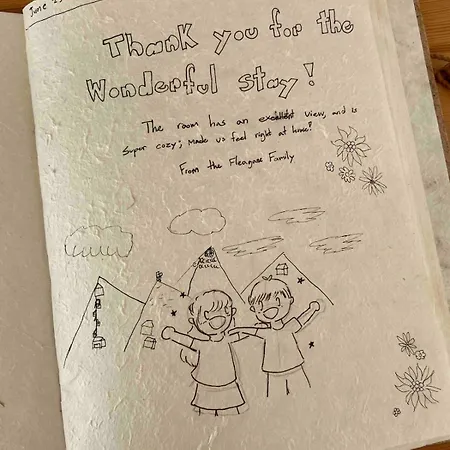 June
Thank you for the
Wonderful stay!
The room has an excellent view, and is
super cozy; made us feel right at home!
From the Family